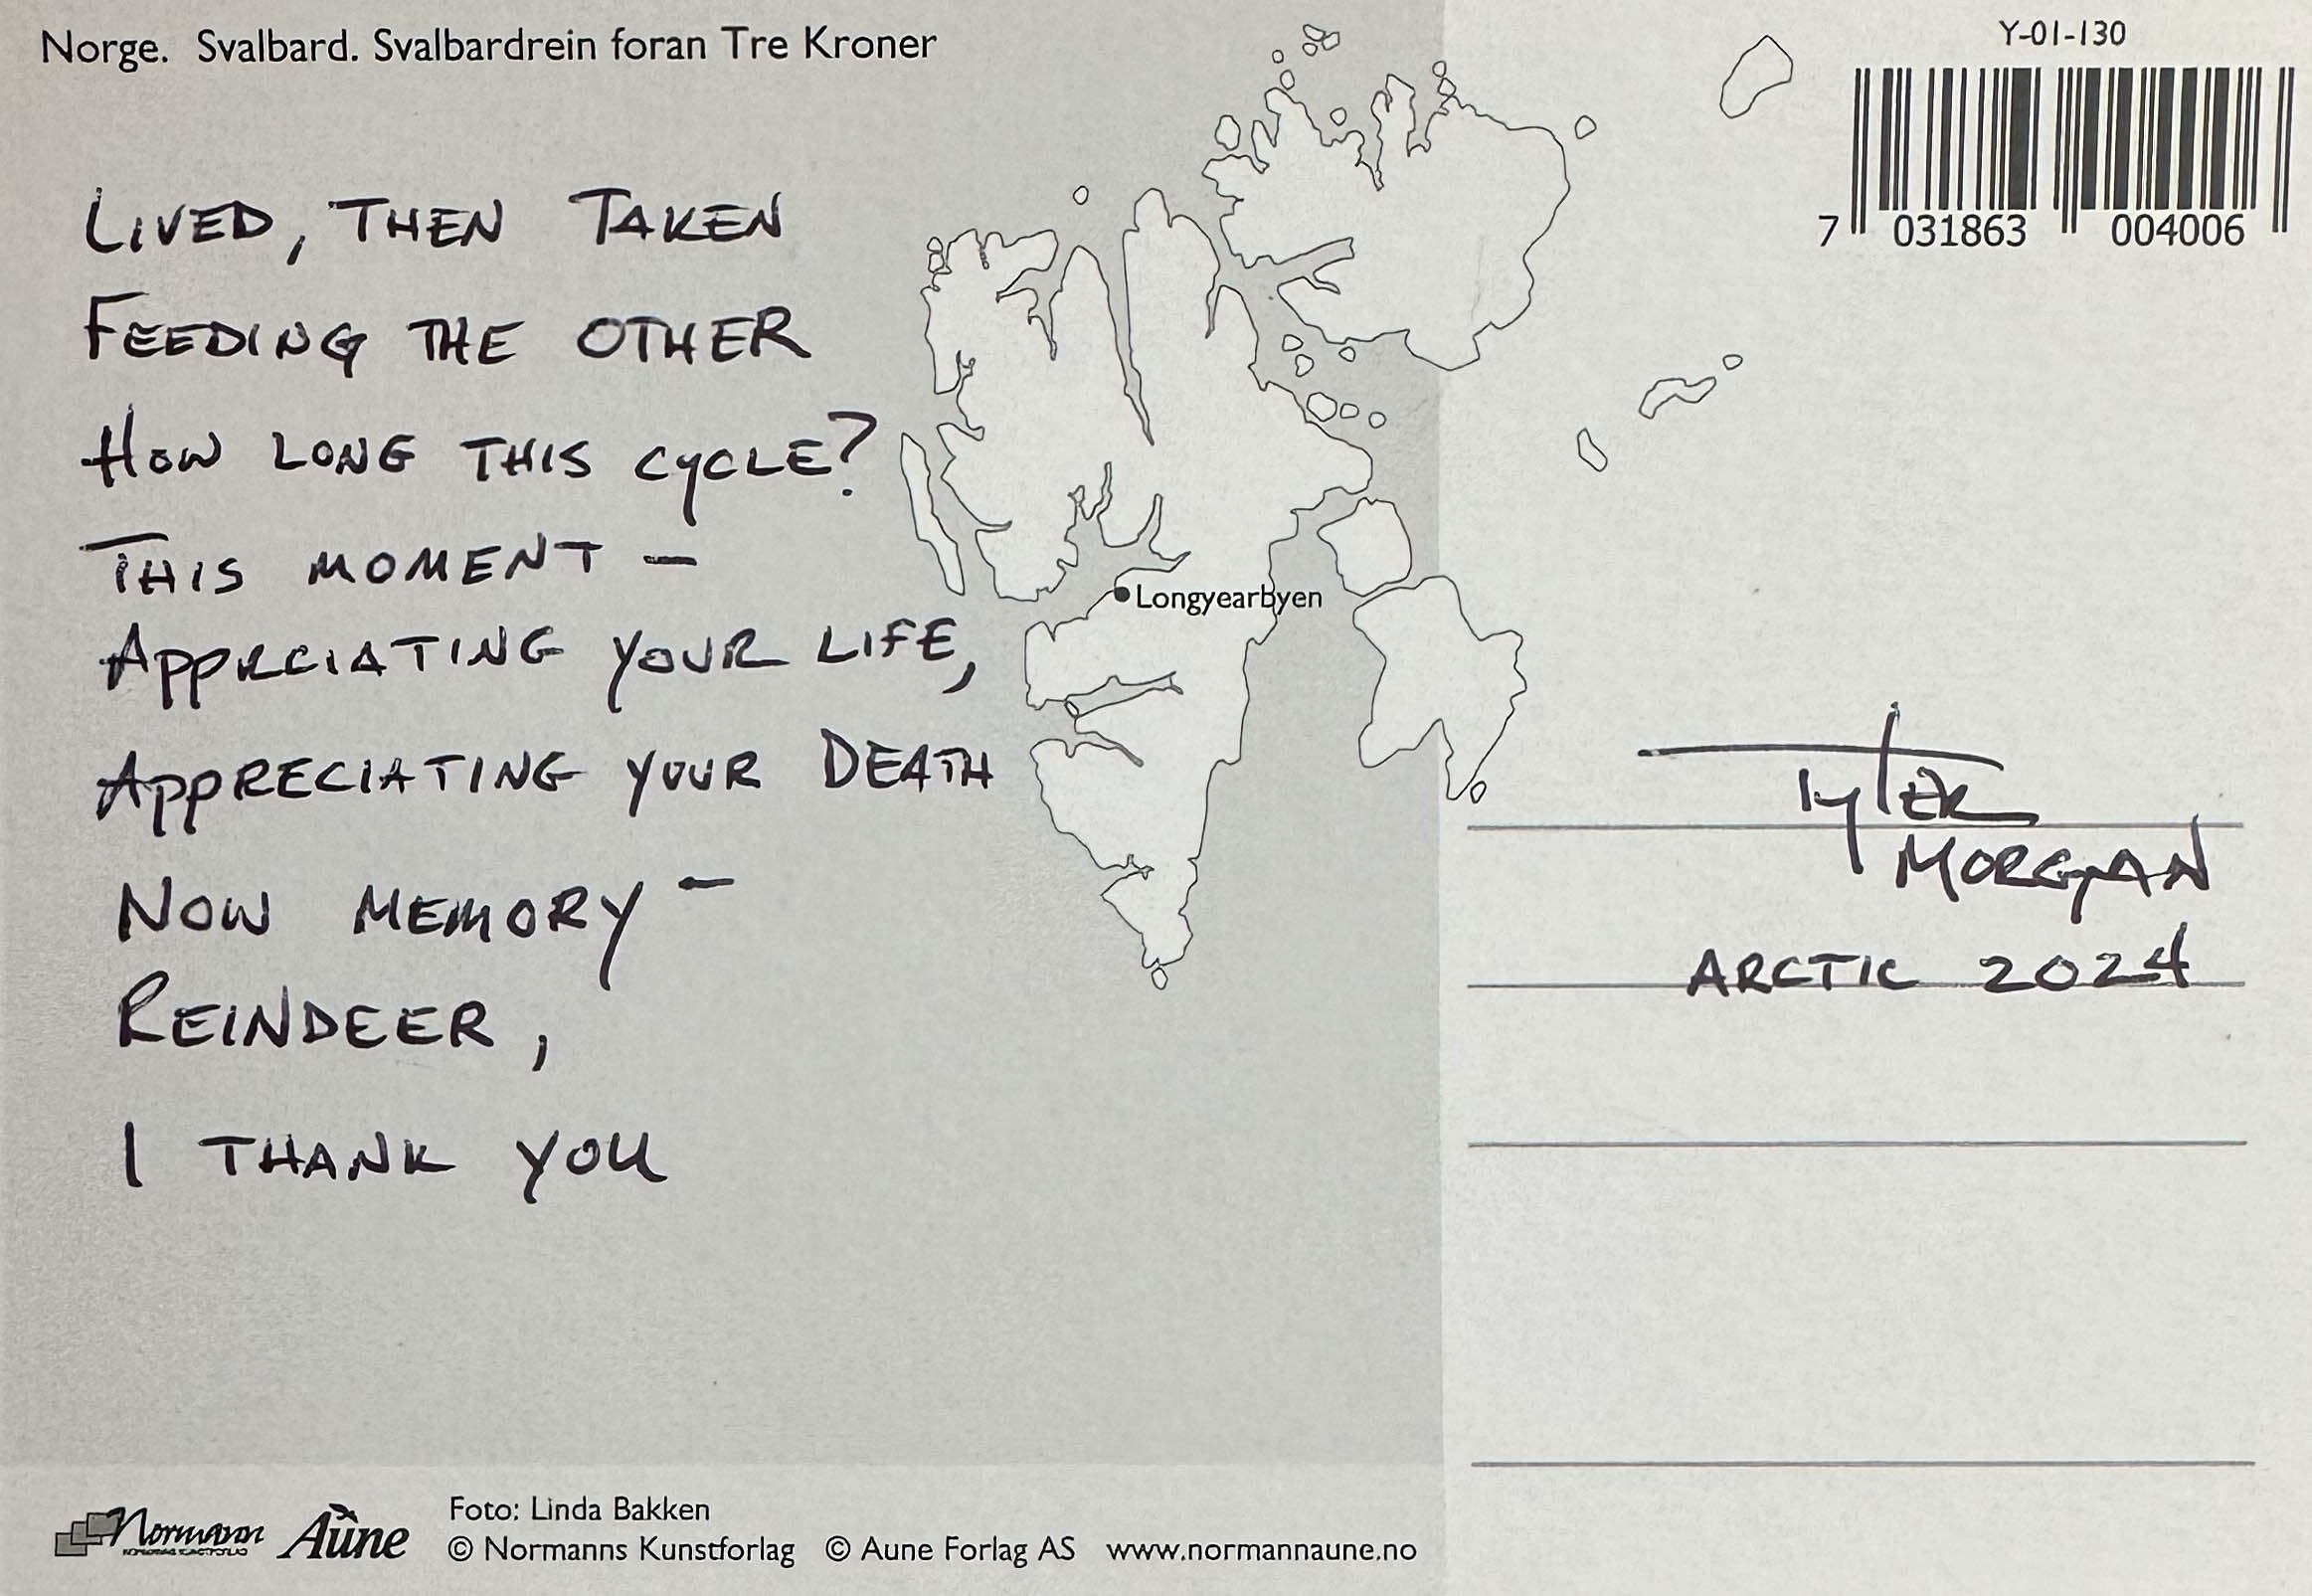 Norge. Svalbard. Svalbardrein foran Tre Kroner
Y-01-130
7 031863 004006
LIVED, THEN TAKEN
FEEDING THE OTHER
HOW LONG THIS CYCLE?
THIS MOMENT –
APPRCIATING YOUR LIFE,
APPRECIATING YOUR DEATH
NOW MEMORY –
REINDEER,
I THANK YOU
Longyearbyen
TYLER
MORGAN
ARCTIC 2024
Normann Aune
Foto: Linda Bakken
© Normanns Kunstforlag © Aune Forlag AS www.normannaune.no